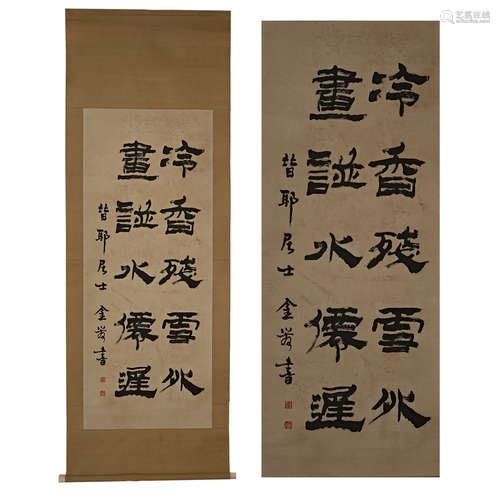 冷香殘雪外
畫水僊遲
昔耶居士 金農書
冷香殘雪外
畫水僊遲
昔耶居士 金農書
艺狐在线